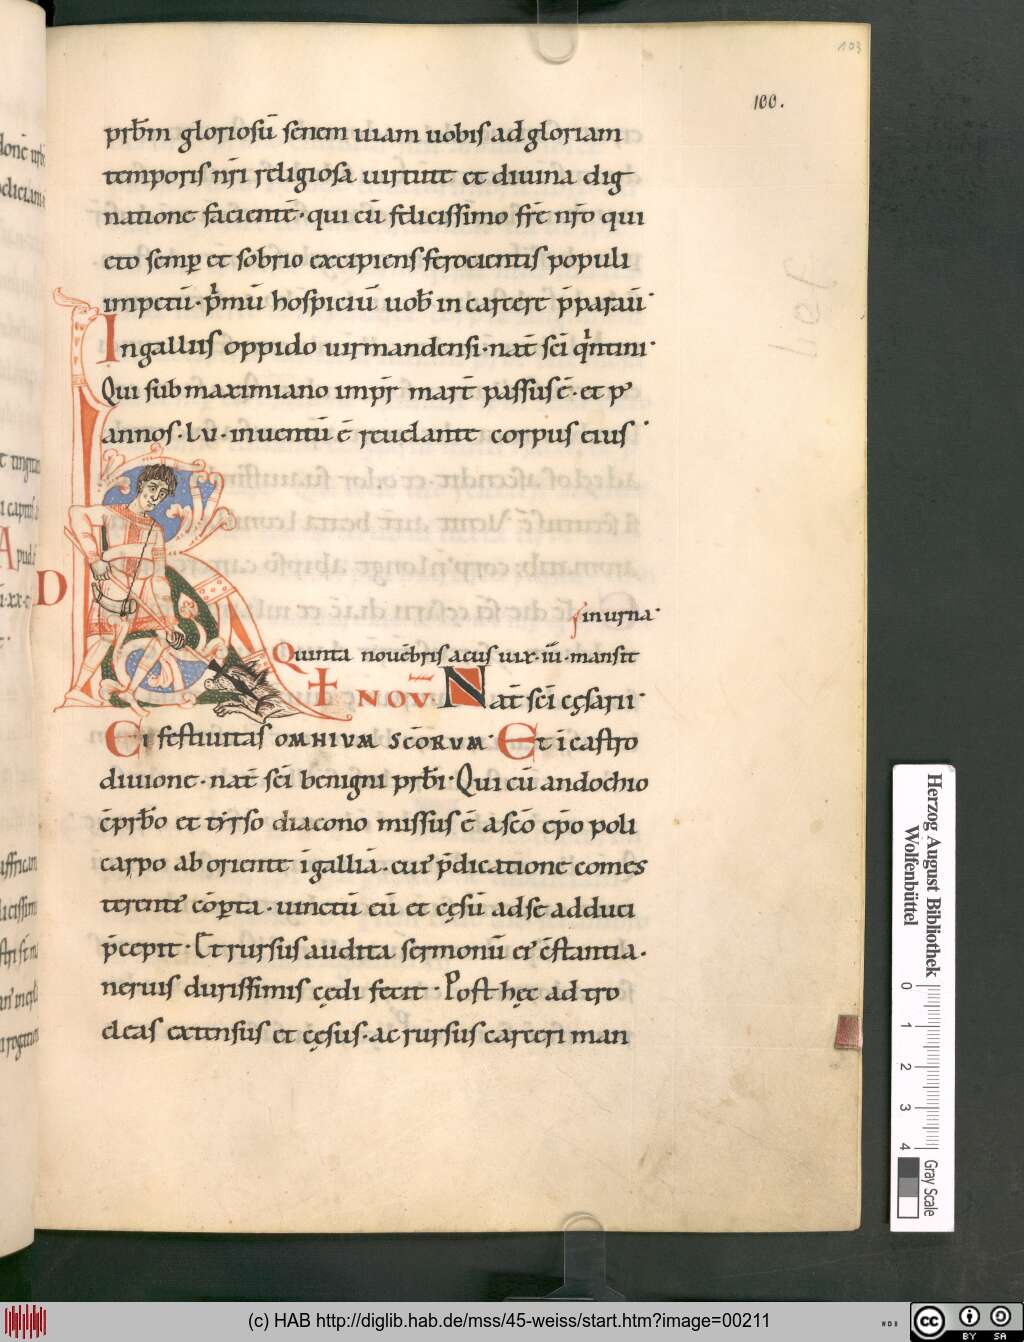 103
100.
prb̄m gloriosū senem uiam uobis ad gloriam
temporis nr̄i religiosa uirtute et diuina dig
natione faciente·̄ qui cū felicissimo fr̄e nr̄o qui
eto semꝑ et sobrio excipiens ferocientis populi
impetū· p̍mū hospiciū uob̄ in carcere p̄parau̅·
In galliis oppido uirmandensi· nat̄ sc̄i q̍ntini·
Qui sub maximiano impr̄ mart̄ passus ē· et p̾
annos· lv· inuentū ē reuelante corpus eius·
D
K
sin urna·
Quinta nouēbris acus uix· iii̅· mansit
+ NOV̄ Nat̄ sc̄i cęsarii·
Ei festiuitas OMNIVM SC̄ORVM· Et ī castro
diuione· nat̄ sc̄i benigni prb̄i· Qui cū andochio
c̄prb̄o et tyrso diacono missus ē a sc̄o ep̄o poli
carpo ab oriente ī galliā· cui᾽ p̄dicatione comes
terenti᾽ cōꝑta· uinctū eū et cęsū ad se adduci
p̄cepit· Et rursus audita sermonū ei᾽ c̄stantia·
neruis durissimis cędi fecit· Post hęc ad tro
cleas extensus et cęsus· ac rursus carceri man
Herzog August Bibliothek
Wolfenbüttel
0 1 2 3 4
Gray Scale
(c) HAB http://diglib.hab.de/mss/45-weiss/start.htm?image=00211
cc BY SA